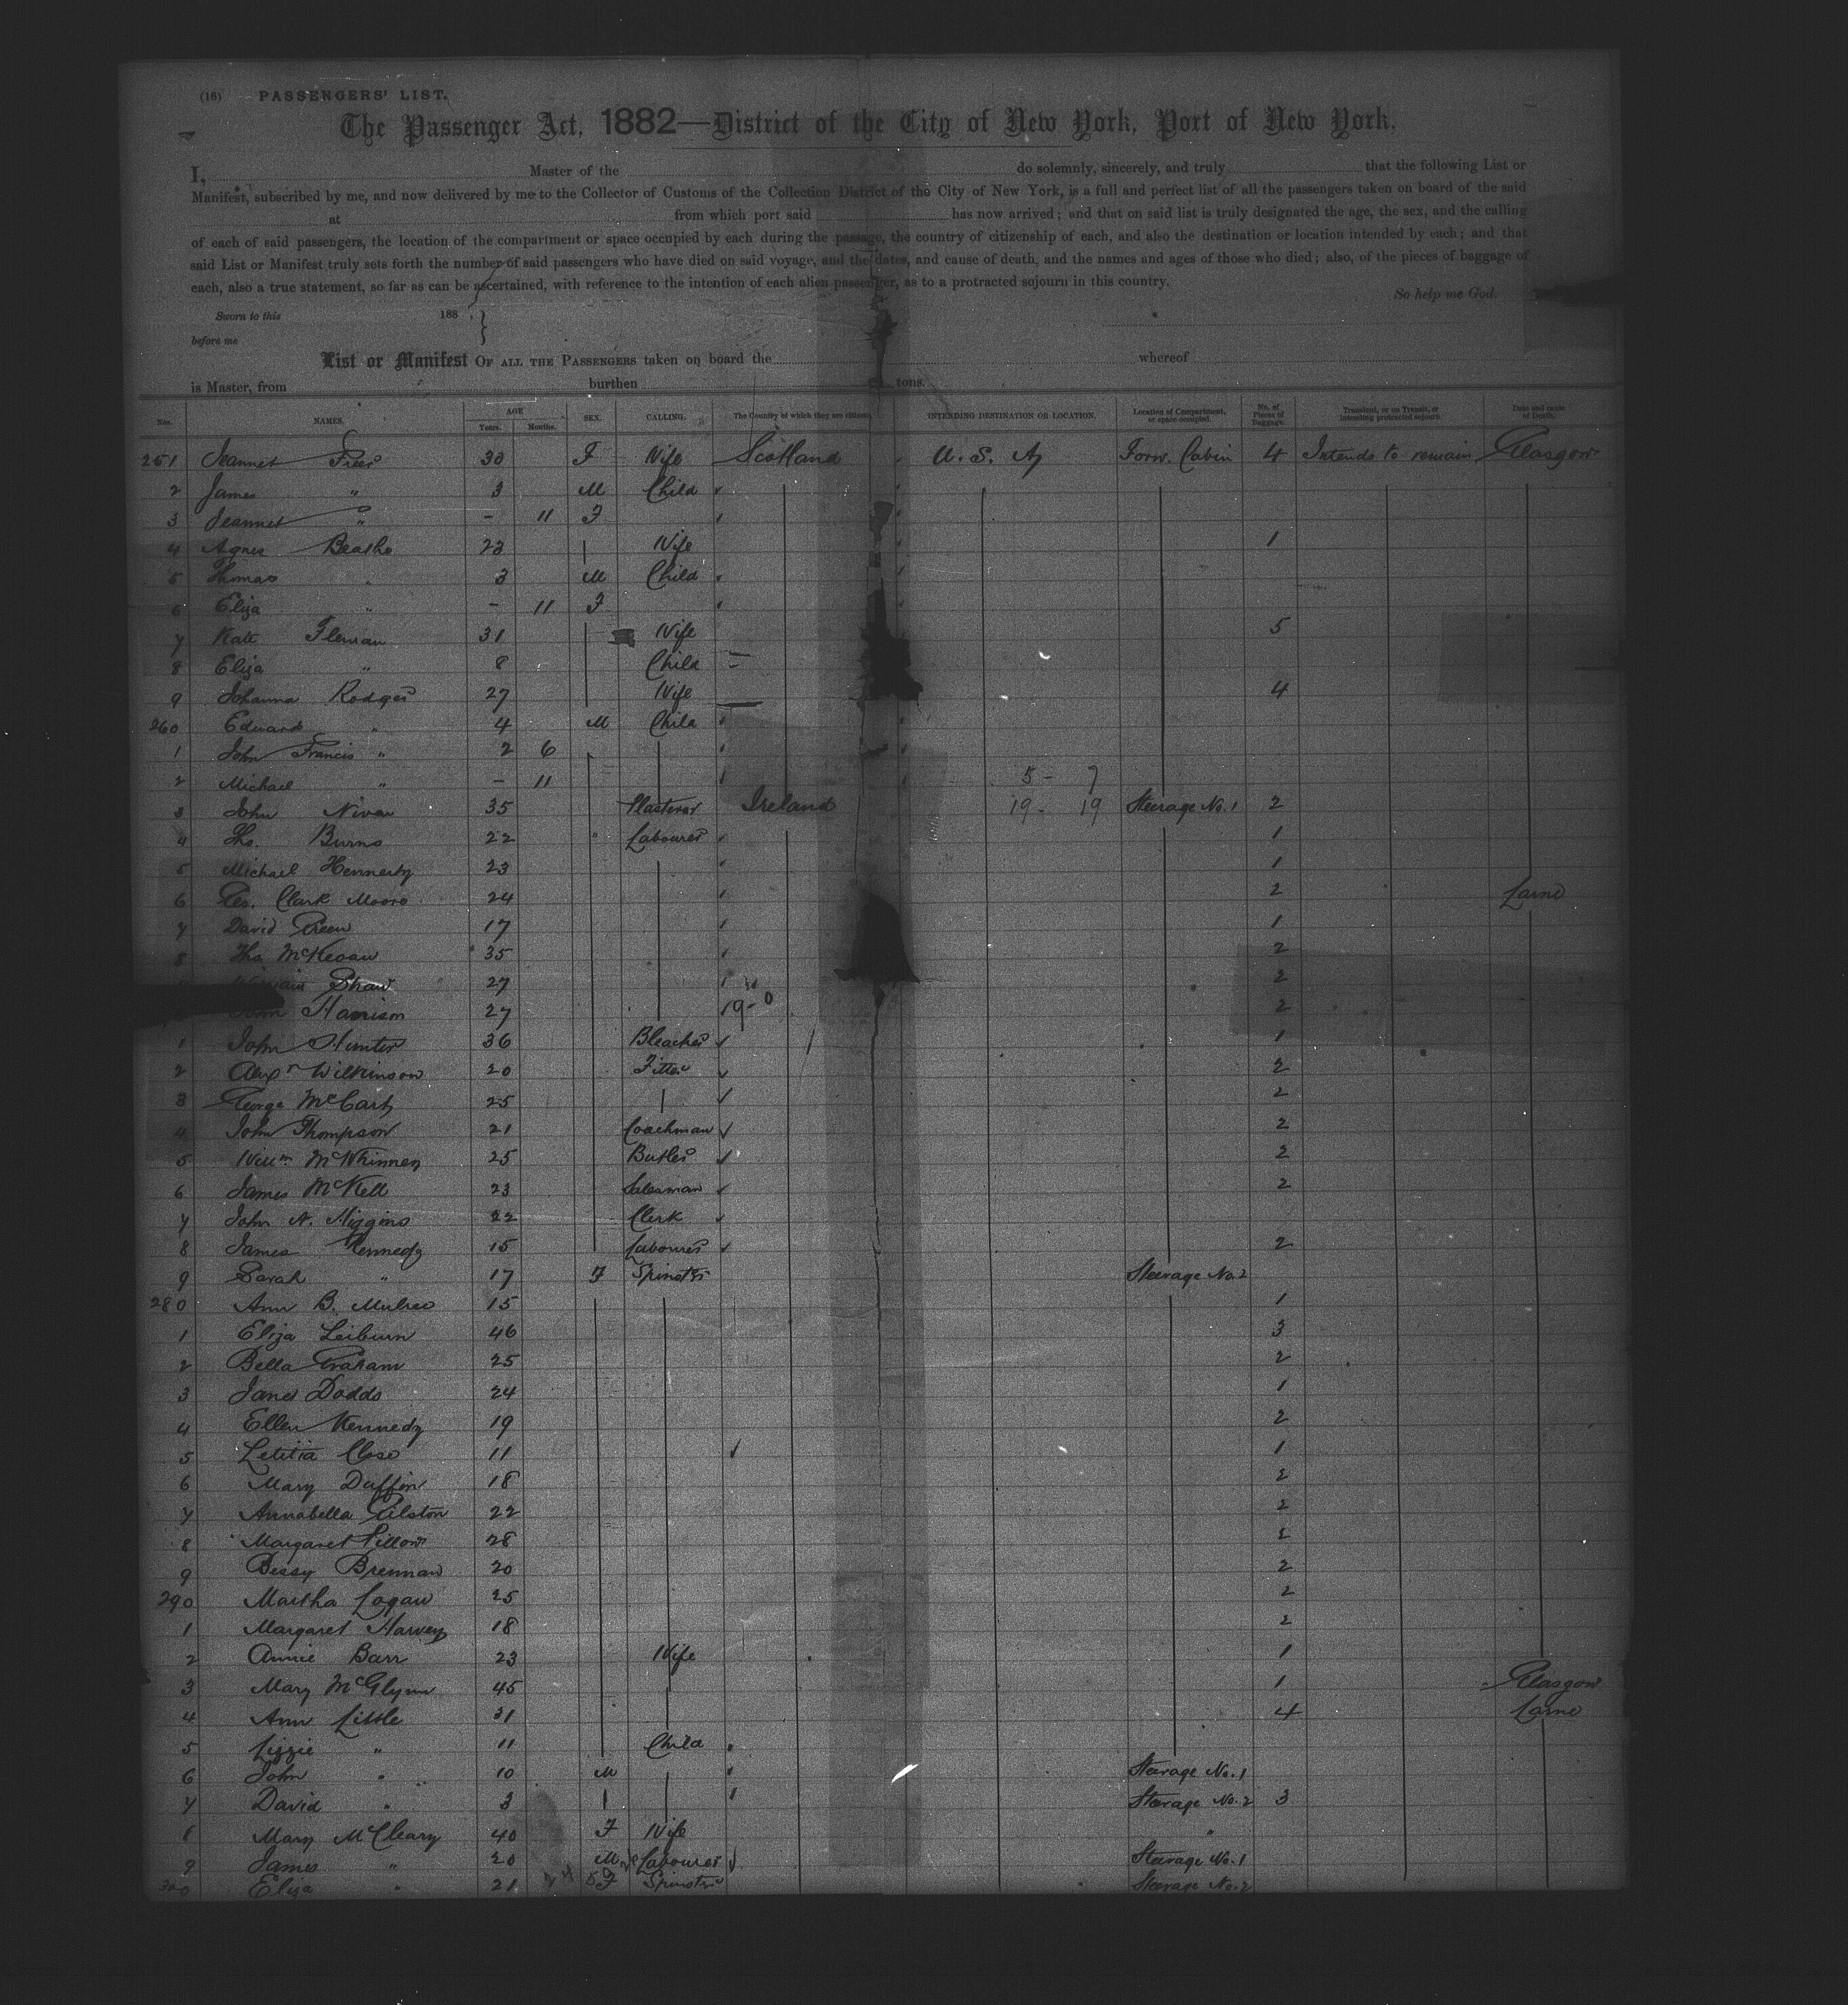 (16) PASSENGERS' LIST.
The Passenger Act, 1882—District of the City of New York, Port of New York.
I, Master of the do solemnly, sincerely, and truly that the following List or
Manifest, subscribed by me, and now delivered by me to the Collector of Customs of the Collection District of the City of New York, is a full and perfect list of all the passengers taken on board of the said
at from which port said has now arrived; and that on said list is truly designated the age, the sex, and the calling
of each of said passengers, the location of the compartment or space occupied by each during the passage, the country of citizenship of each, and also the destination or location intended by each; and that
said List or Manifest truly sets forth the number of said passengers who have died on said voyage, and the dates, and cause of death, and the names and ages of those who died; also, of the pieces of baggage of
each, also a true statement, so far as can be ascertained, with reference to the intention of each alien passenger, as to a protracted sojourn in this country.
So help me God.
Sworn to this 188
before me
List or Manifest OF ALL THE PASSENGERS taken on board the whereof
is Master, from burthen tons.
Nos. NAMES. AGE Years. Months. SEX. CALLING. The Country of which they are citizens. INTENDING DESTINATION OR LOCATION. Location of Compartment, or space occupied. No. of Pieces of Baggage. Transient, or in Transit, or intending protracted sojourn. Date and cause of Death.
251 Jeannet 30 F Wife Scotland U. S. A Forw. Cabin 4 Intends to remain Glasgow
2 James " 3 M Child
3 Jeannet " - 11 F
4 Agnes 23 Wife 1
5 Thomas " 3 M Child
6 Eliza " - 11 F
7 Kate 31 Wife 5
8 Eliza " 8 Child
9 Johanna Rodger 27 Wife 4
260 Edward " 4 M Child
1 John Francis " 2 6
2 Michael " - 11 5 - 7
3 John Niven 35 Plasterer Ireland 19 - 19 Steerage No. 1 2
4 Tho. Burns 22 " Labourer 1
5 Michael 23 1
6 Geo. Clark Moore 24 2 Larne
7 David Green 17 1
8 Tho McKeown 35 2
Shaw 27 2
John Harrison 27 19-0 2
1 John Hunter 36 Bleacher 1
2 Alexr Wilkinson 20 Fitter 2
3 George 25 2
4 John Thompson 21 Coachman 2
5 Willm McWhinney 25 Butler 2
6 James McKell 23 Salesman 2
7 John A. Higgins 22 Clerk
8 James Kennedy 15 Labourer 2
9 Sarah " 17 F Spinster Steerage No. 2
280 Ann B. 15 1
1 Eliza 46 3
2 Bella Graham 25 2
3 Jane Dodds 24 1
4 Ellen Kennedy 19 2
5 Letitia Close 11 1
6 Mary Duffin 18 2
7 Annabella Gilston 22 2
8 Margaret 28 2
9 Bessy Brennan 20 2
290 Martha Logan 25 2
1 Margaret Harvey 18 2
2 Annie Barr 23 Wife 1
3 Mary McGlynn 45 1 Glasgow
4 Ann Little 31 4 Larne
5 Lizzie " 11 Child
6 John " 10 M Steerage No. 1
7 David " 3 Steerage No. 2 3
8 Mary McCleary 40 F Wife "
9 James " 20 M Labourer Steerage No. 1
300 Eliza " 21 F Spinster Steerage No. 2